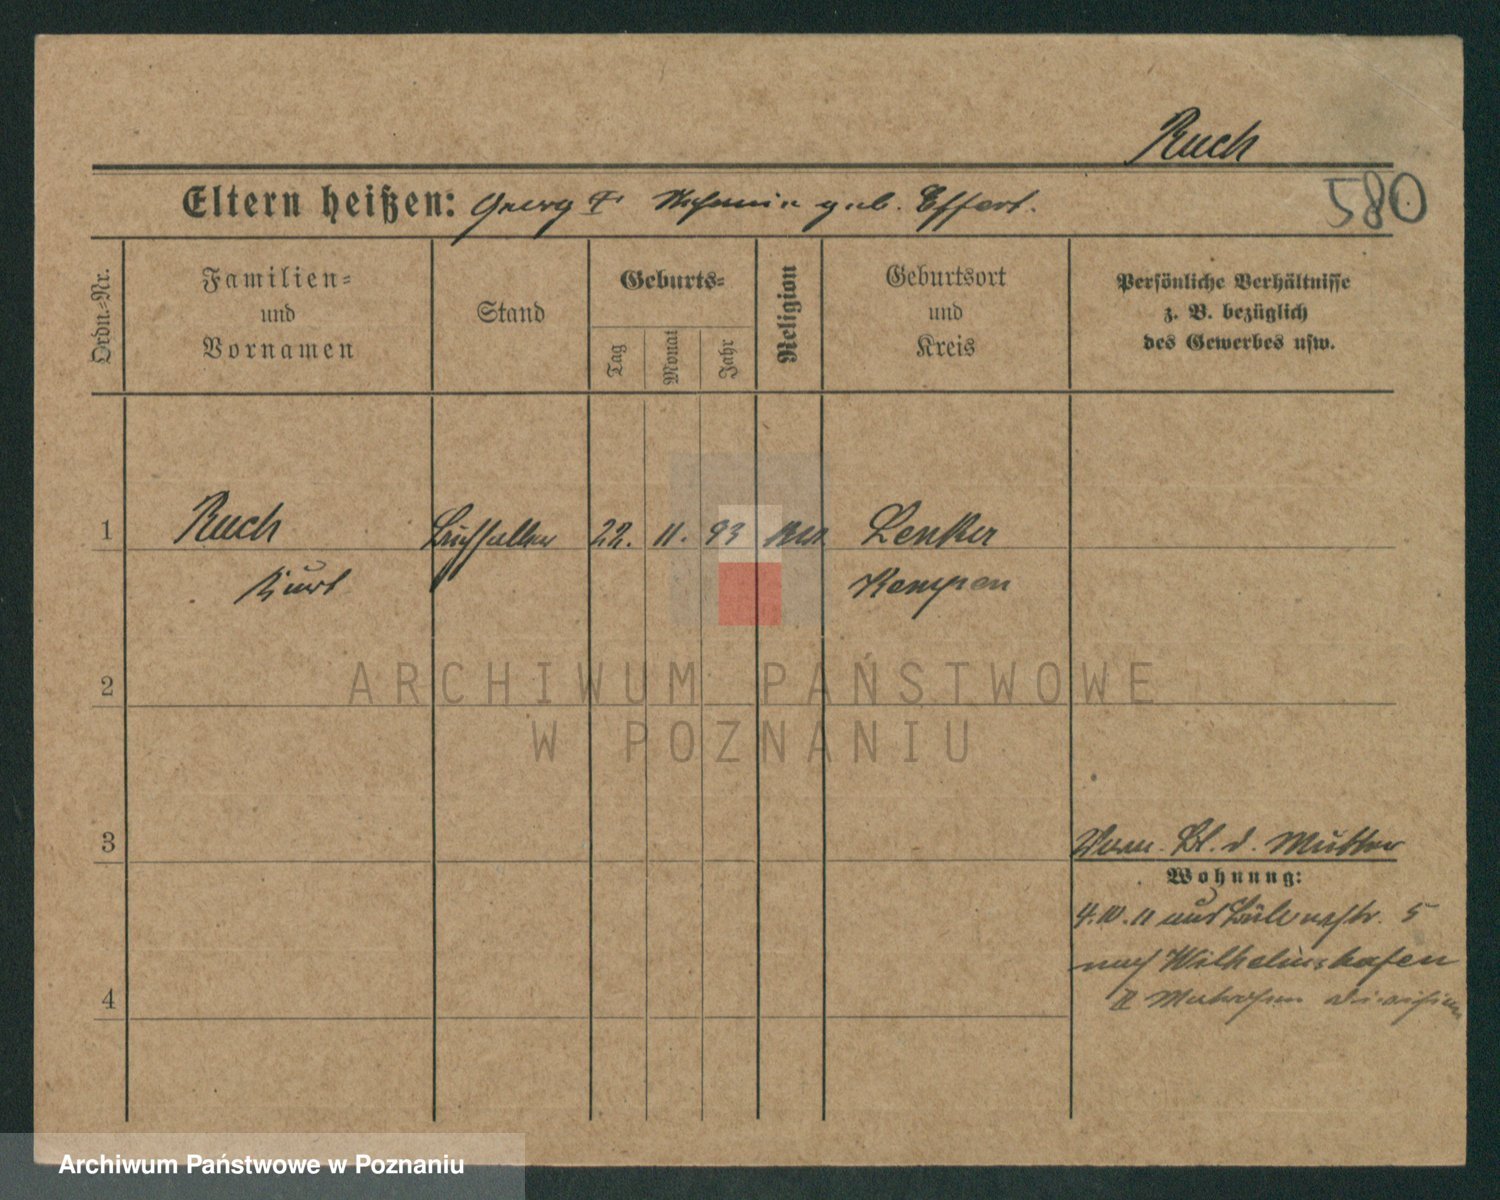 Ruch
580
Eltern heißen: Georg geb. Effert.
Ordn.-Nr.
Familien-
und
Vornamen
Stand
Geburts-
Tag
Monat
Jahr
Religion
Geburtsort
und
Kreis
Persönliche Verhältnisse
z. B. bezüglich
des Gewerbes usw.
1 Ruch 22. 11. 93 Lenka
Kurt Kempen
ARCHIWUM PAŃSTWOWE
2
W POZNANIU
3 d. Mutter
Wohnung:
4.10.11 aus 5
nach Wilhelmshafen
4 II Matrosen Division
Archiwum Państwowe w Poznaniu